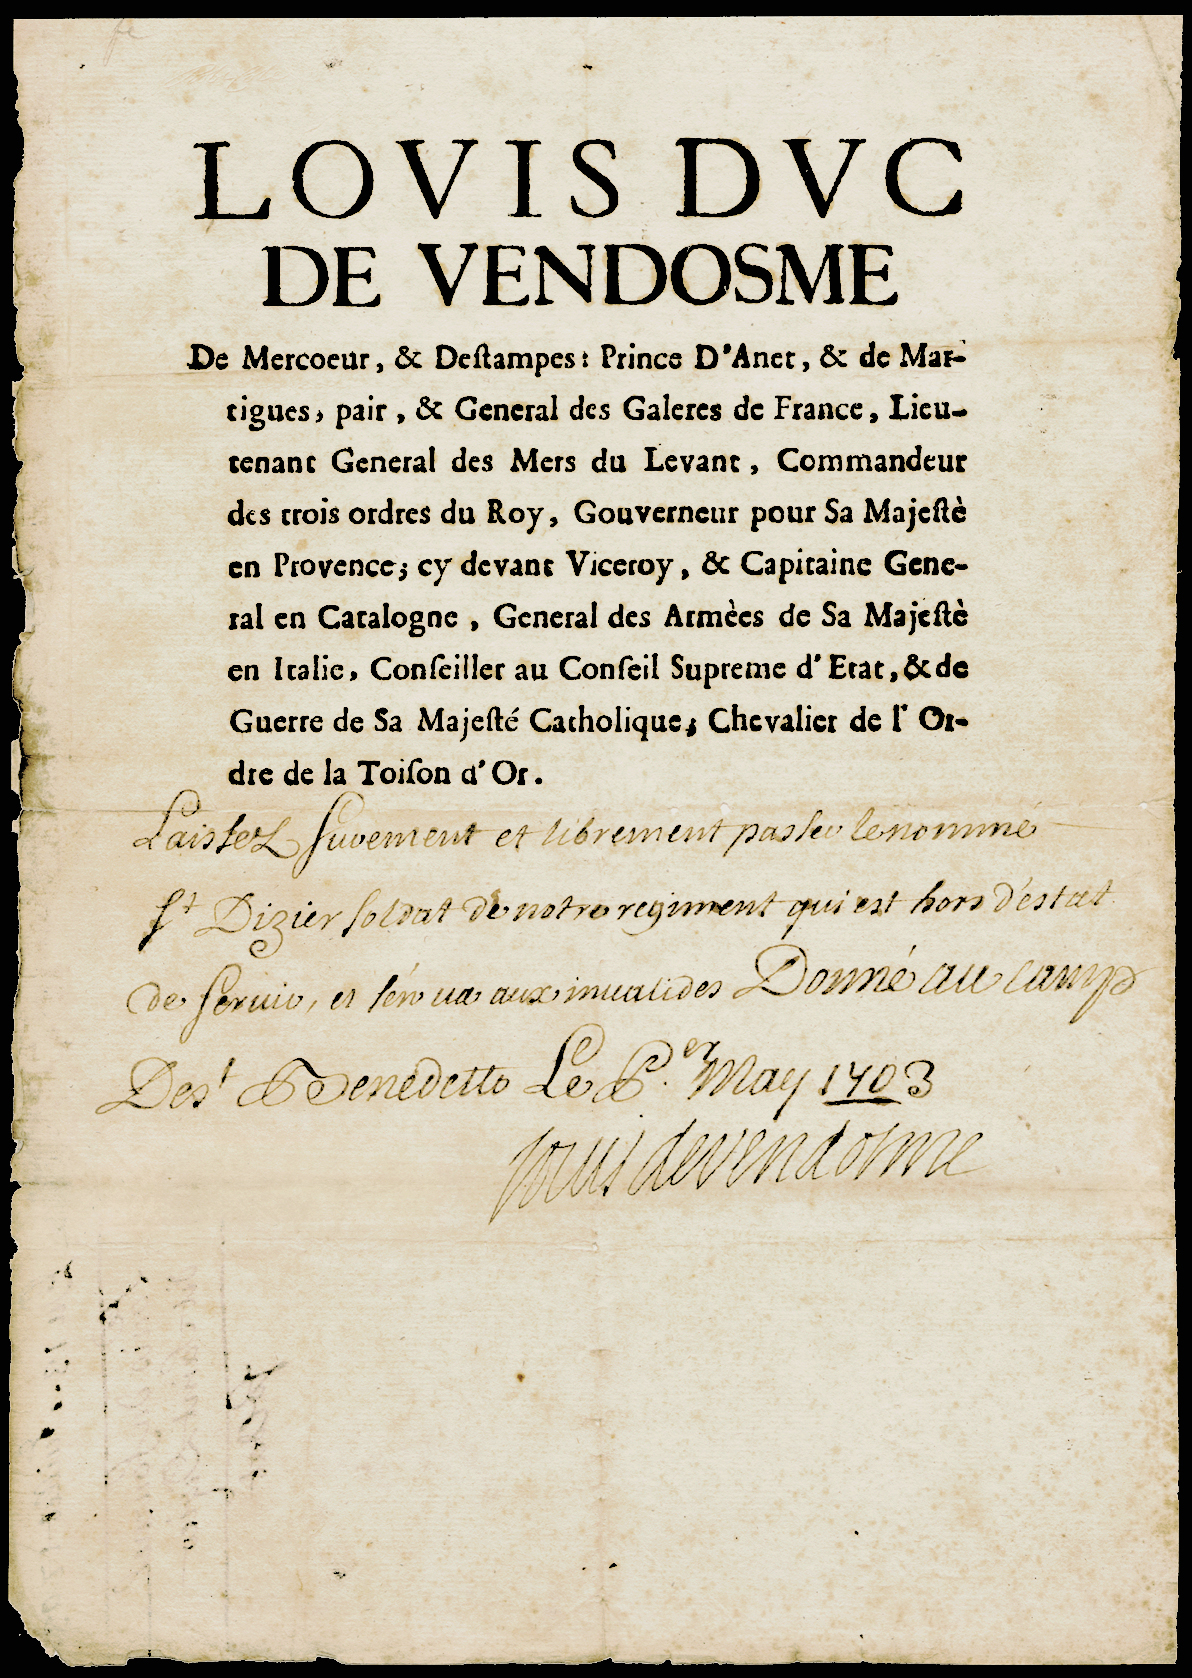 LOVIS DVC
DE VENDOSME
De Mercoeur, & Deſtampes: Prince D'Anet, & de Mar-
tigues, pair, & General des Galeres de France, Lieu-
tenant General des Mers du Levant, Commandeur
des trois ordres du Roy, Gouverneur pour Sa Majeſtè
en Provence; cy devant Viceroy, & Capitaine Gene-
ral en Catalogne, General des Armèes de Sa Majeſtè
en Italie, Conſeiller au Conſeil Supreme d'Etat, & de
Guerre de Sa Majeſté Catholique; Chevalier de l'Or-
dre de la Toiſon d'Or.
Laissez ſurement et librement passer le nommé
St Dizier soldat de notre regiment qui est hors d'estat
de servir, et s'en va aux invalides Donné au camp
De st Benedetto Le P.er May 1703
Louis de vendosme